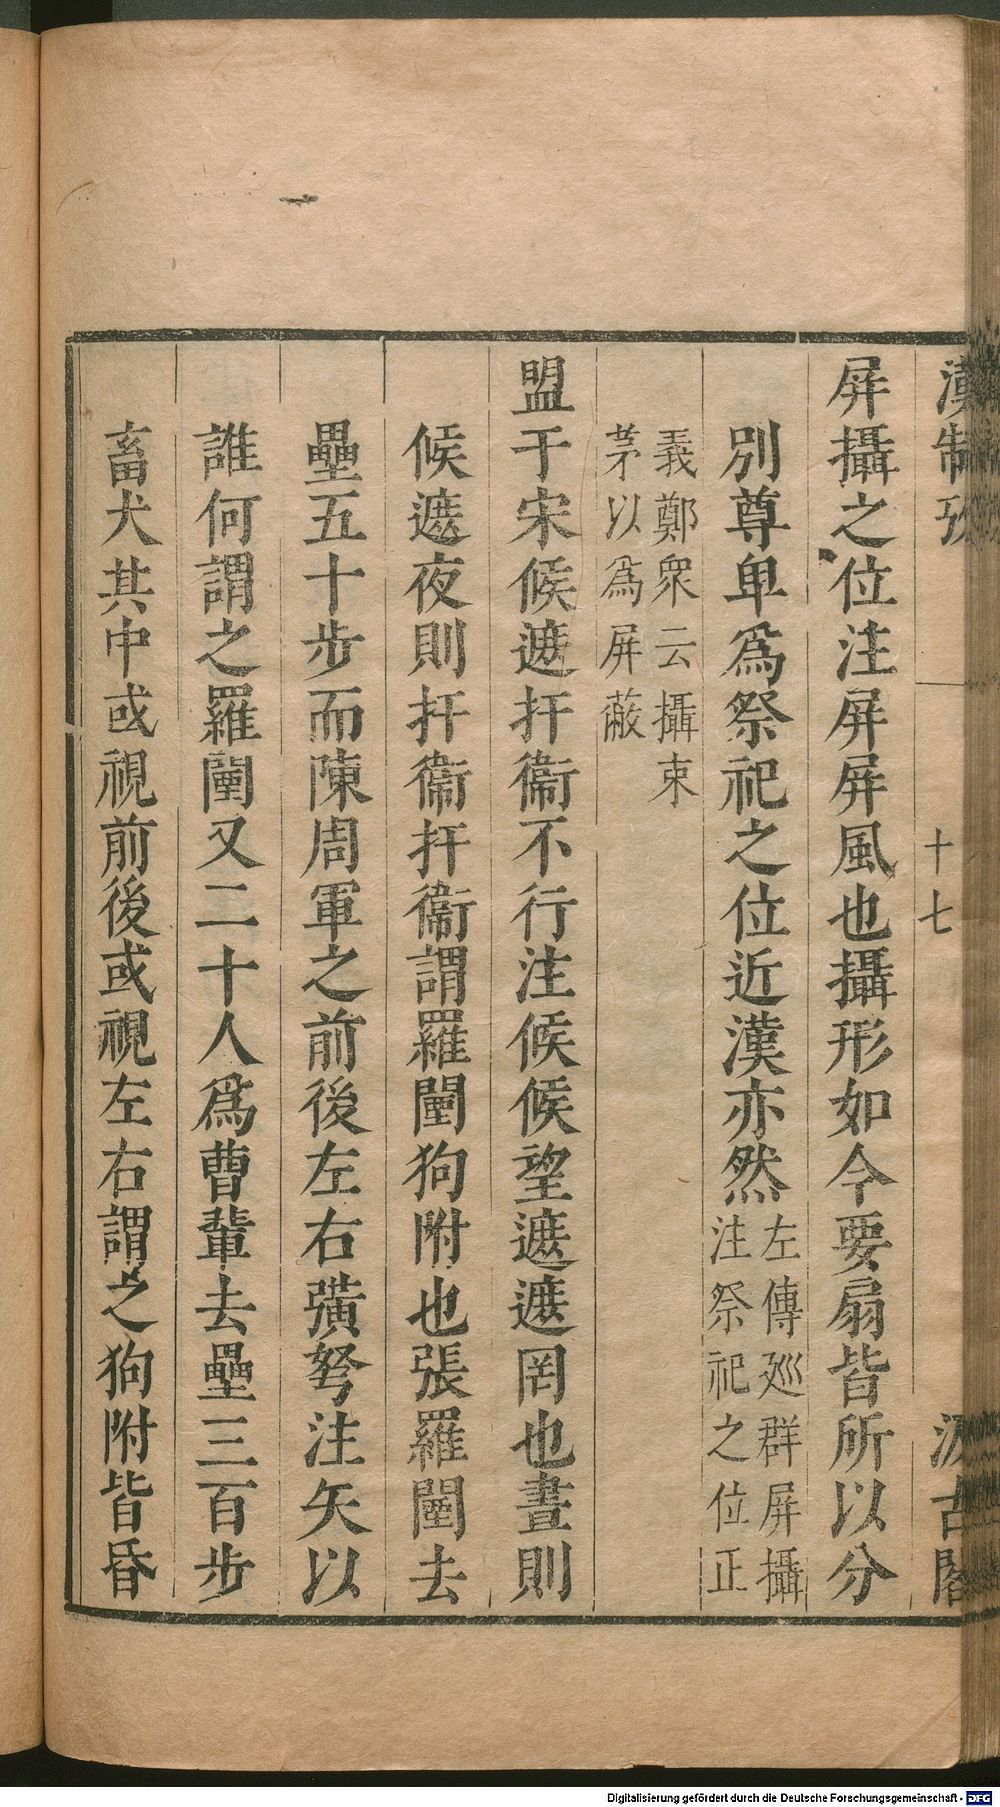 漢制攷 十七 汲古閣
屏攝之位注屏屏風也攝形如今要扇皆所以分
別尊卑爲祭祀之位近漢亦然左傳廵群屏攝
注祭祀之位正
義鄭衆云攝束
茅以爲屏蔽
盟于宋候遮扞衞不行注候候望遮遮罔也晝則
候遮夜則扞衞扞衞謂羅闉狗附也張羅闉去
壘五十步而陳周軍之前後左右彍弩注矢以
誰何謂之羅闉又二十人爲曹輩去壘三百步
畜犬其中或視前後或視左右謂之狗附皆昏
Digitalisierung gefördert durch die Deutsche Forschungsgemeinschaft - DFG